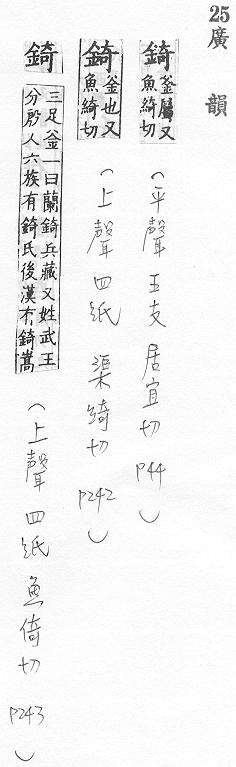 25 廣韻
錡 釜屬又魚綺切 (平聲 五支 居宜切 P44)
錡 釜也又魚綺切 (上聲 四紙 渠綺切 P242)
錡 三足釜一曰蘭錡兵藏又姓武王分殷人六族有錡氏後漢有錡嵩 (上聲 四紙 魚倚切 P243)